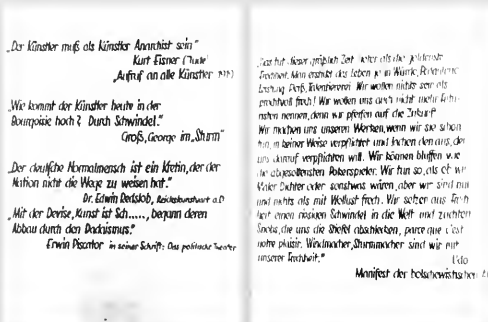 „Der Künstler muß als Künstler Anarchist sein“
Kurt Eisner (Jude)
„Aufruf an alle Künstler
„Wie kommt der Künstler heute in der
Bourgoisie hoch? Durch Schwindel.“
Groß, George im „Sturm“
„Der deutsche Normalmensch ist ein Kretin, der der
Nation nicht die Wege zu weisen hat.“
Dr. Edwin Redslob, Reichskunstwart a.D
„Mit der Devise, Kunst ist Sch....., begann deren
Abbau durch den Dadaismus.“
Erwin Piscator in seiner Schrift: Das politische Theater
tut dieser Zeit als die
Frechheit. Man erstickt das Leben in
Wir wollen nichts sein als
prachtvoll frech! Wir wollen uns auch nicht mehr
nennen, denn wir pfeifen auf die Zukunft
Wir machen uns unseren Werken, wenn wir sie schon
tun, in keiner Weise verpflichtet und lachen den aus, der
uns darauf verpflichten will. Wir können bluffen wie
die abgesottensten Pokerspieler. Wir tun so, als ob wir
Maler Dichter oder sonstwas wären, aber wir sind nur
und nichts als mit Wollust frech. Wir setzen aus Frech
heit einen riesigen Schwindel in die Welt und züchten
Snobs, die uns die Stiefel abschlecken, parce que c'est
notre plaisir. Windmacher, Sturmmacher sind wir mit
unserer Frechheit.“
Manifest der bolschewistischen